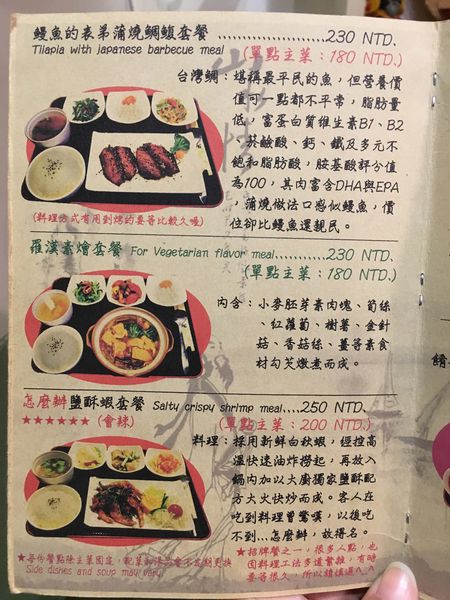 鰻魚的表弟蒲燒鯛鰻套餐..................230 NTD.
Tilapia with japanese barbecue meal (單點主菜：180 NTD.)
台灣鯛：堪稱最平民的魚，但營養價
值可一點都不平常，脂肪量
低，富蛋白質維生素B1、B2
、菸鹼酸、鈣、鐵及多元不
飽和脂肪酸，胺基酸評分值
為100，其肉富含DHA與EPA
，蒲燒做法口感似鰻魚，價
位卻比鰻魚還親民。
(料理方式有用到烤的要等比較久喔)
羅漢素燴套餐 For Vegetarian flavor meal..........230 NTD.
(單點主菜：180 NTD.)
內含：小麥胚芽素肉塊、筍絲
、紅蘿蔔、樹薯、金針
菇、香菇絲、薑等素食
材勾芡燉煮而成。
怎麼辦鹽酥蝦套餐 Salty crispy shrimp meal....250 NTD.
★★★★★★ (會辣) (單點主菜：200 NTD.)
料理：採用新鮮白秋蝦，經控高
溫快速油炸撈起，再放入
鍋內加以大廚獨家鹽酥配
方大火快炒而成。客人在
吃到料理曾驚嘆，以後吃
不到...怎麼辦，故得名。
★每份餐點除主菜固定，配菜和湯品會不定期更換
Side dishes and soup may vary.
★招牌餐之一，很多人點，也
因料理工法多道繁雜，有時
要等很久，所以請慎選^_^